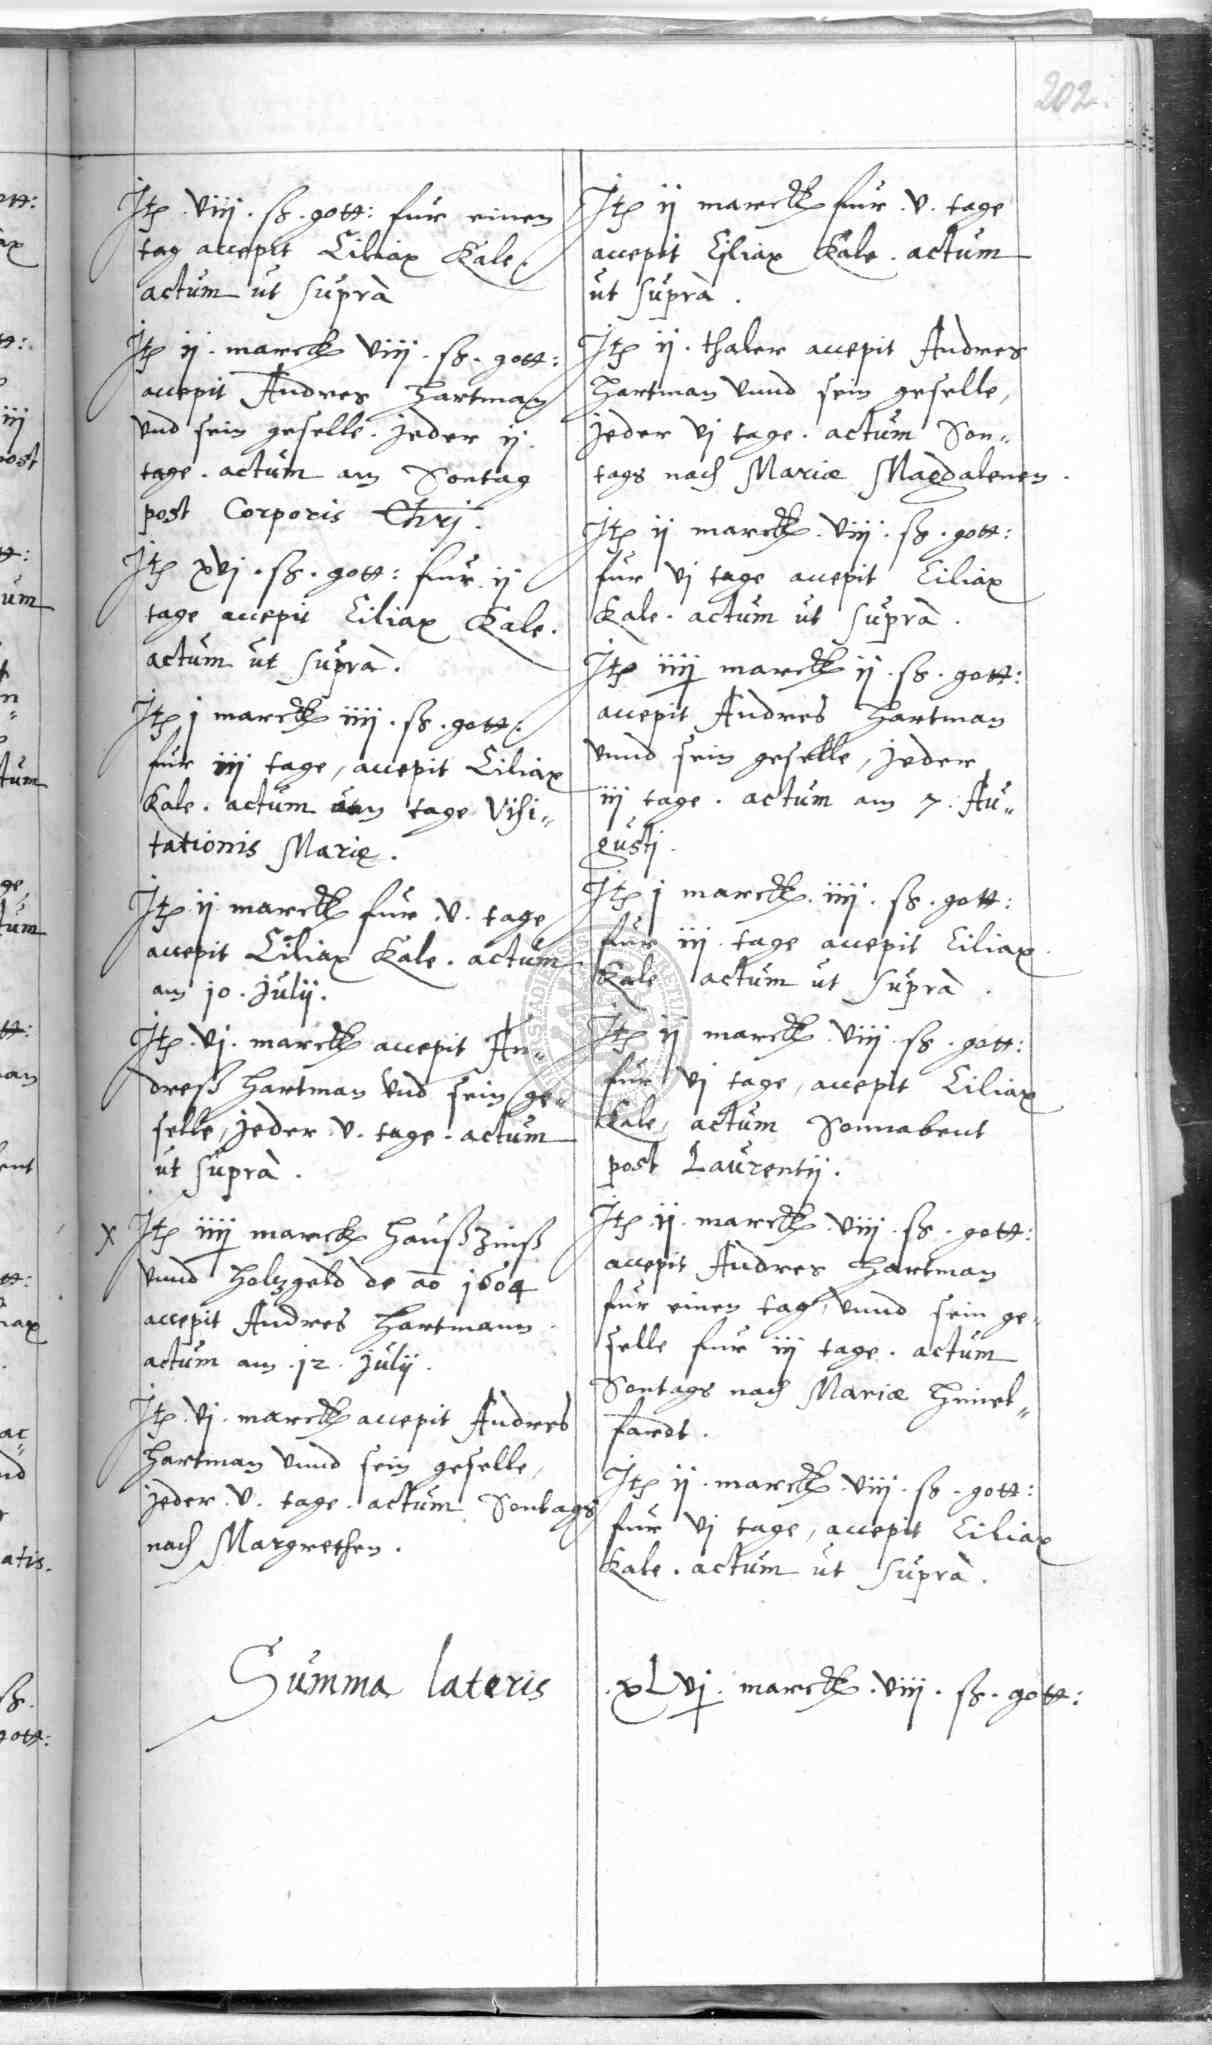 202.
Jtē .viij. ß. gott: fur einen
tag accepit Ciliax Kale.
actum ut suprà
Jtē ij. marck viij. ß. gott:
accepit Andres Hartman
vnd sein geselle. jeder ij.
tage. actum am Sontag
post Corporis Chrj.
Jtē xvj. ß. gott: fur ij
tage accepit Ciliax Kale.
actum ut suprà.
Jtē j marck iiij. ß. gott:
fur iij tage, accepit Ciliax
Kale. actum am tage Visi„
tationis Marię.
Jtē ij marck fur .v. tage
accepit Ciliax Kale. actum
am 10. Julij.
Jtē .vj. marck accepit An„
dreß Hartman vnd sein ge„
selle, jeder .v. tage. actum
ut suprà.
x Jtē iiij marck Haußzinß
vnnd Holzgeld de ao 1604
accepit Andres Hartmann.
actum am .12. Julij.
Jtē .vj. marck accepit Andres
Hartman vnnd sein geselle,
jeder .v. tage. actum Sontags
nach Margrethen.
Jtē ij marck fur .v. tage
accepit Ciliax Kale. actum
ut suprà.
Jtē ij. thaler accepit Andres
Hartman vnnd sein geselle,
jeder vj tage. actum Son„
tags nach Mariæ Magdalenen.
Jtē ij marck .viij. ß. gott:
fur vj tage accepit Ciliax
Kale. actum ut suprà.
Jtē iiij marck ij. ß. gott:
accepit Andres Hartman
vnnd sein geselle, jeder
iij tage. actum am 7. Au„
gustj.
Jtē j marck. iiij. ß. gott:
fur iij. tage accepit Ciliax
Kale actum ut suprà.
Jtē ij marck .viij. ß. gott:
fur vj tage, accepit Ciliax
Kale, actum Sonnabent
post Laurentij.
Jtē .ij. marck .viij. ß. gott:
accepit Andres Hartman
fur einen tag, vnnd sein ge„
selle fur iij tage. actum
Sontags nach Mariæ Himel„
fardt.
Jtē ij. marck .viij. ß. gott:
fur vj tage, accepit Ciliax
Kale. actum ut suprà.
Summa lateris .xLvj. marck .viij. ß. gott: